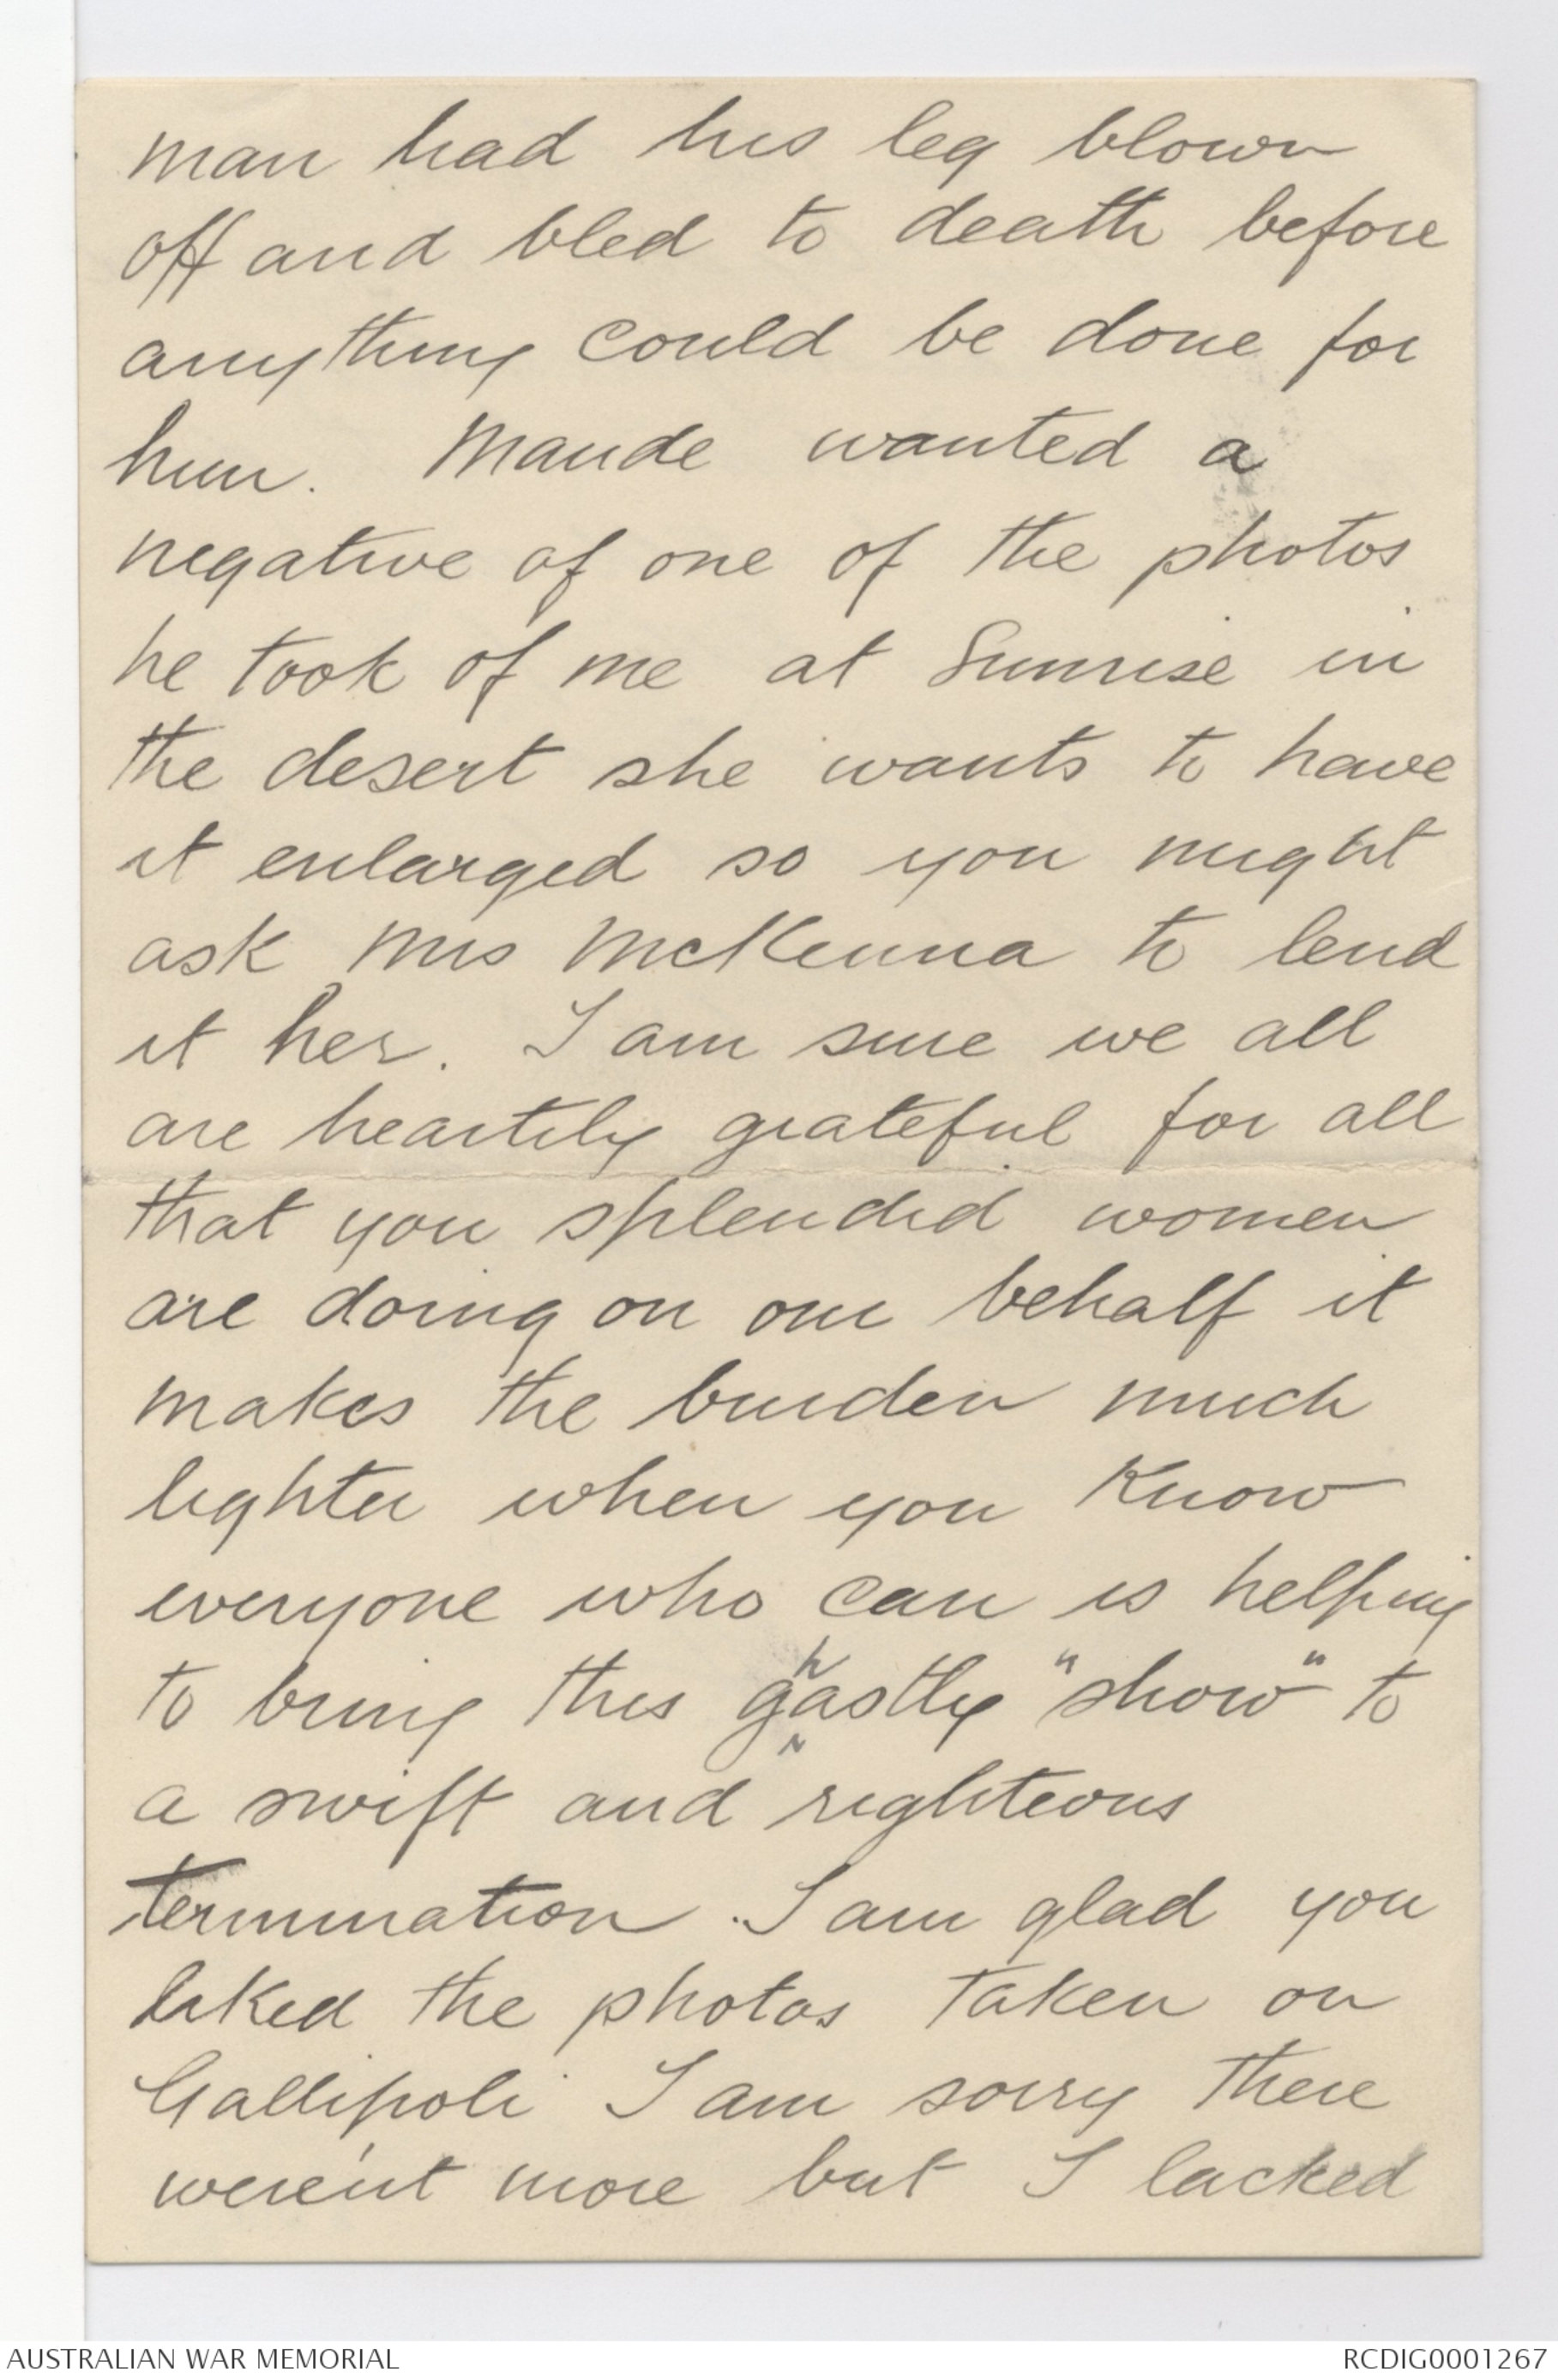 man had his leg blown
off and bled to death before
anything could be done for
him. Maude wanted a
negative of one of the photos
he took of me at Sunrise in
the desert she wants to have
it enlarged so you might
ask Mrs McKenna to lend
it her. I am sure we all
are heartily grateful for all
that you splendid women
are doing on our behalf it
makes the burden much
lighter when you know
everyone who can is helping
to bring this ghastly "show" to
a swift and righteous
termination. I am glad you
liked the photos taken on
Gallipoli I am sorry there
were'nt more but I lacked
AUSTRALIAN WAR MEMORIAL
RCDIG0001267